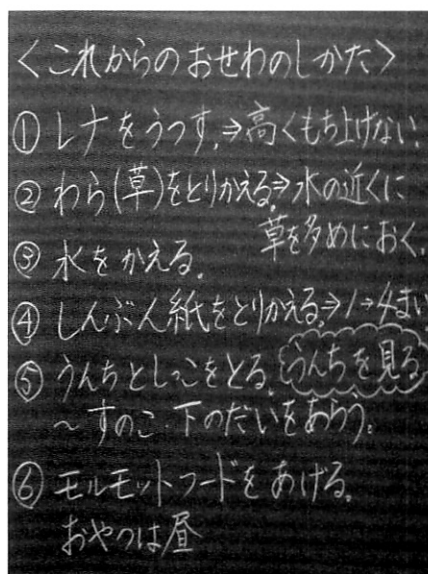 <これからのおせわのしかた>
① レナをうつす。⇒高くもち上げない。
② わら(草)をとりかえる。⇒水の近くに
草を多めにおく。
③ 水をかえる。
④ しんぶん紙をとりかえる。⇒1→4まい
⑤ うんちとしっこをとる。うんちを見る
～すのこ・下のだいをあらう。
⑥ モルモットフードをあげる。
おやつは昼